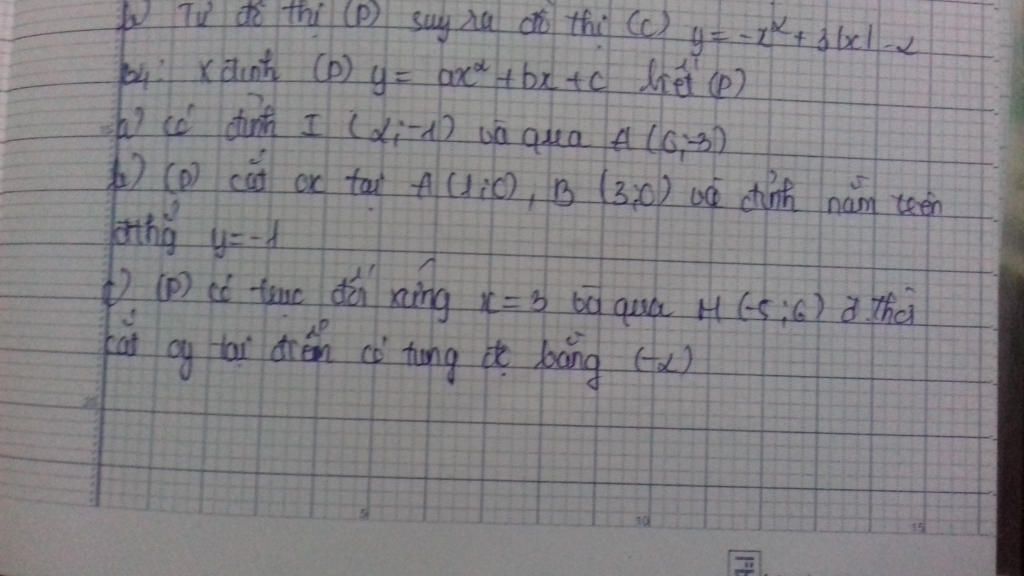 b) Từ đồ thị (P) suy ra đồ thị (C) y = -x² + 3|x| -2
B4: Xđịnh (P) y = ax² + bx + c biết (P)
a) có đỉnh I (2; -1) và qua A (0; -3)
b) (P) cắt ox tại A (1; 0), B (3; 0) và đỉnh nằm trên
đthg y = -1
c) (P) có trục đối xứng x = 3 và qua M (-5; 6) đ.thời
cắt oy tại điểm có tung độ bằng (-2)
5 10 15